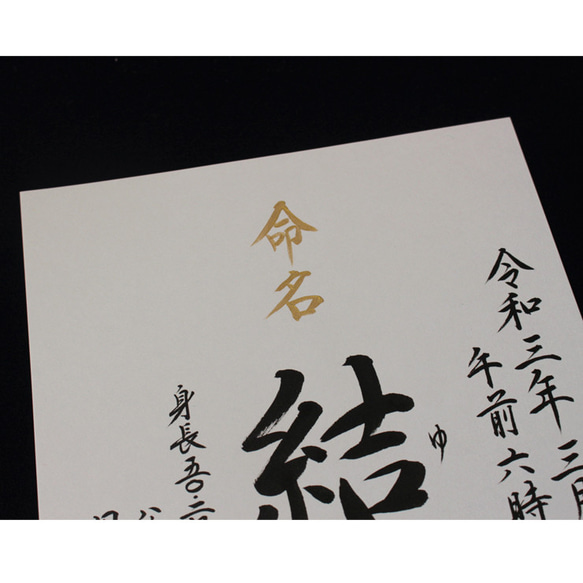 令和三年三月
午前六時
命名
結
ゆ
身長五・